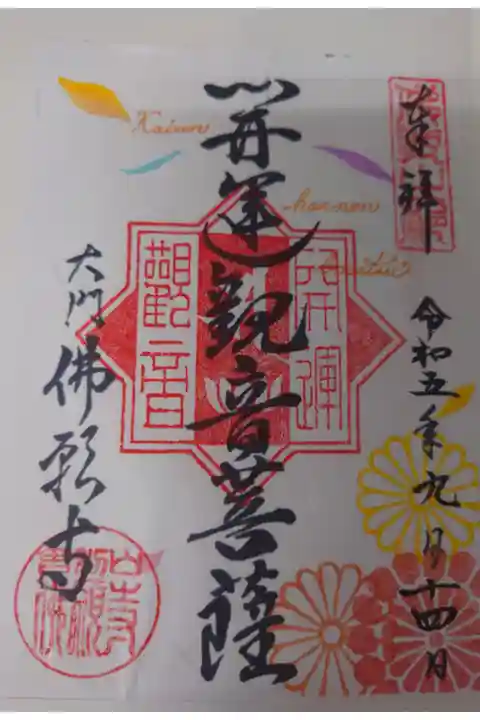 奉拝
令和五年九月十四日
開運観音菩薩
開運
觀音
Kaiun
kannon
大門
佛願寺